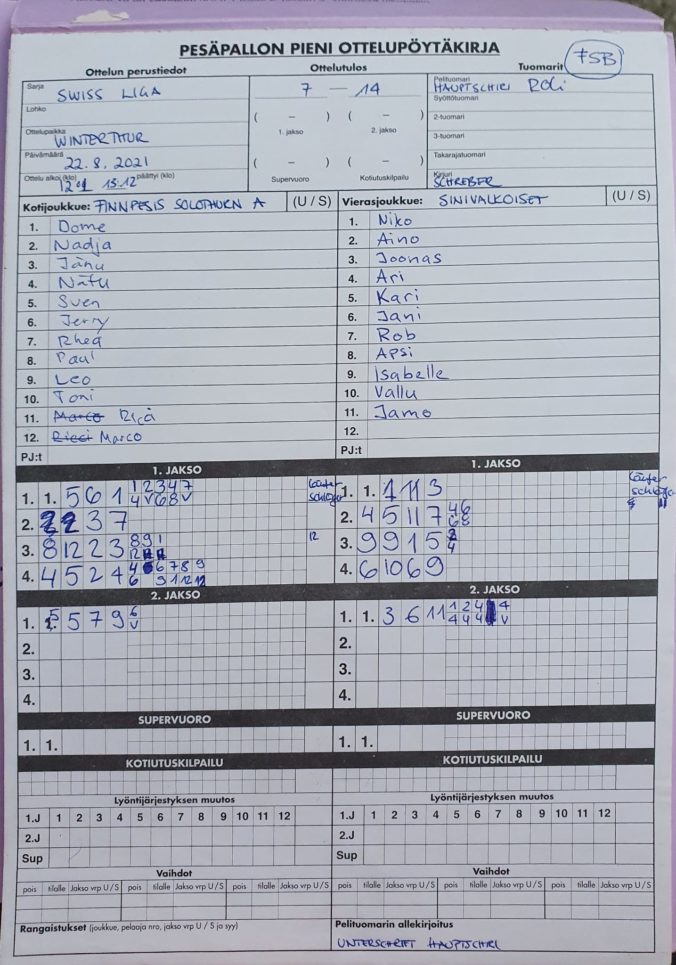 PESÄPALLON PIENI OTTELUPÖYTÄKIRJA
7SB
Ottelun perustiedot
Ottelutulos
Tuomarit
Sarja SWISS LIGA
7 – 14
Pelituomari HAUPTSCHIRI ROLI
Syöttötuomari
Lohko
( – ) ( – )
2-tuomari
Ottelupaikka WINTERTHUR
1. jakso 2. jakso
3-tuomari
Päivämäärä 22.8.2021
( – ) ( – )
Takarajatuomari
Ottelu alkoi (klo) 15:12 päättyi (klo)
Supervuoro Kotiutuskilpailu
Kirjuri SCHREIBER
Kotijoukkue: FINNPESIS SOLOTHURN A (U / S)
Vierasjoukkue: SINIVALKOISET (U / S)
1. Dome
2. Nadja
3. Jänu
4. Nätu
5. Sven
6. Jerry
7. Rhea
8. Paul
9. Leo
10. Toni
11. Marco Ricà
12. Ricci Marco
PJ:t
1. Niko
2. Aino
3. Joonas
4. Ari
5. Kari
6. Jani
7. Rob
8. Apsi
9. Isabelle
10. Vallu
11. Jamo
12.
PJ:t
1. JAKSO
1. 1. 5 6 1
2. 2 3 7
3. 8 12 2 3
4. 4 5 2 4
1. JAKSO
Läufer
1. 1. 1 11 3
2. 4 5 11 7
3. 9 9 1 5
4. 6 10 6 9
2. JAKSO
1. 5 7 9
2.
3.
4.
2. JAKSO
1. 1. 3 6 11
2.
3.
4.
SUPERVUORO
1. 1.
SUPERVUORO
1. 1.
KOTIUTUSKILPAILU
KOTIUTUSKILPAILU
Lyöntijärjestyksen muutos
1.J 1 2 3 4 5 6 7 8 9 10 11 12
2.J
Sup
Lyöntijärjestyksen muutos
1.J 1 2 3 4 5 6 7 8 9 10 11 12
2.J
Sup
Vaihdot
pois tilalle Jakso vrp U / S pois tilalle Jakso vrp U / S pois tilalle Jakso vrp U / S
Vaihdot
pois tilalle Jakso vrp U / S pois tilalle Jakso vrp U / S pois tilalle Jakso vrp U / S
Rangaistukset (joukkue, pelaaja nro, jakso vrp U / S ja syy)
Pelituomarin allekirjoitus
UNTERSCHRIFT HAUPTSCHIRI